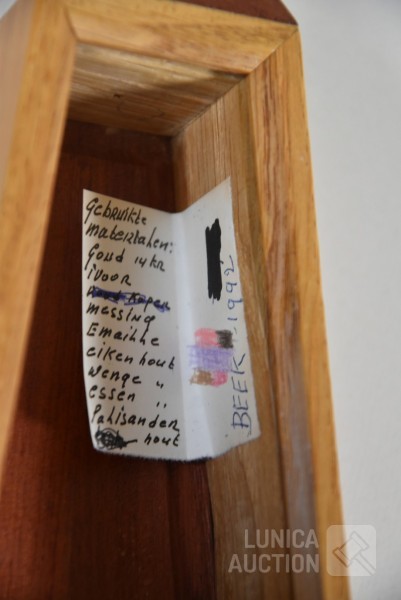 Gebruikte
materialen:
Goud 14 kr
ivoor
messing
Emaille
eikenhout
wenge "
essen "
Palisander
hout
BEEK - 1992
LUNICA
AUCTION